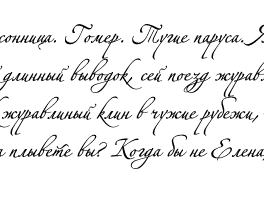 сонница. Гомер. Тугие паруса. Я
длинный выводок, сей поезд журав
журавлиный клин в чужие рубежи,
плывете вы? Когда бы не Елена,